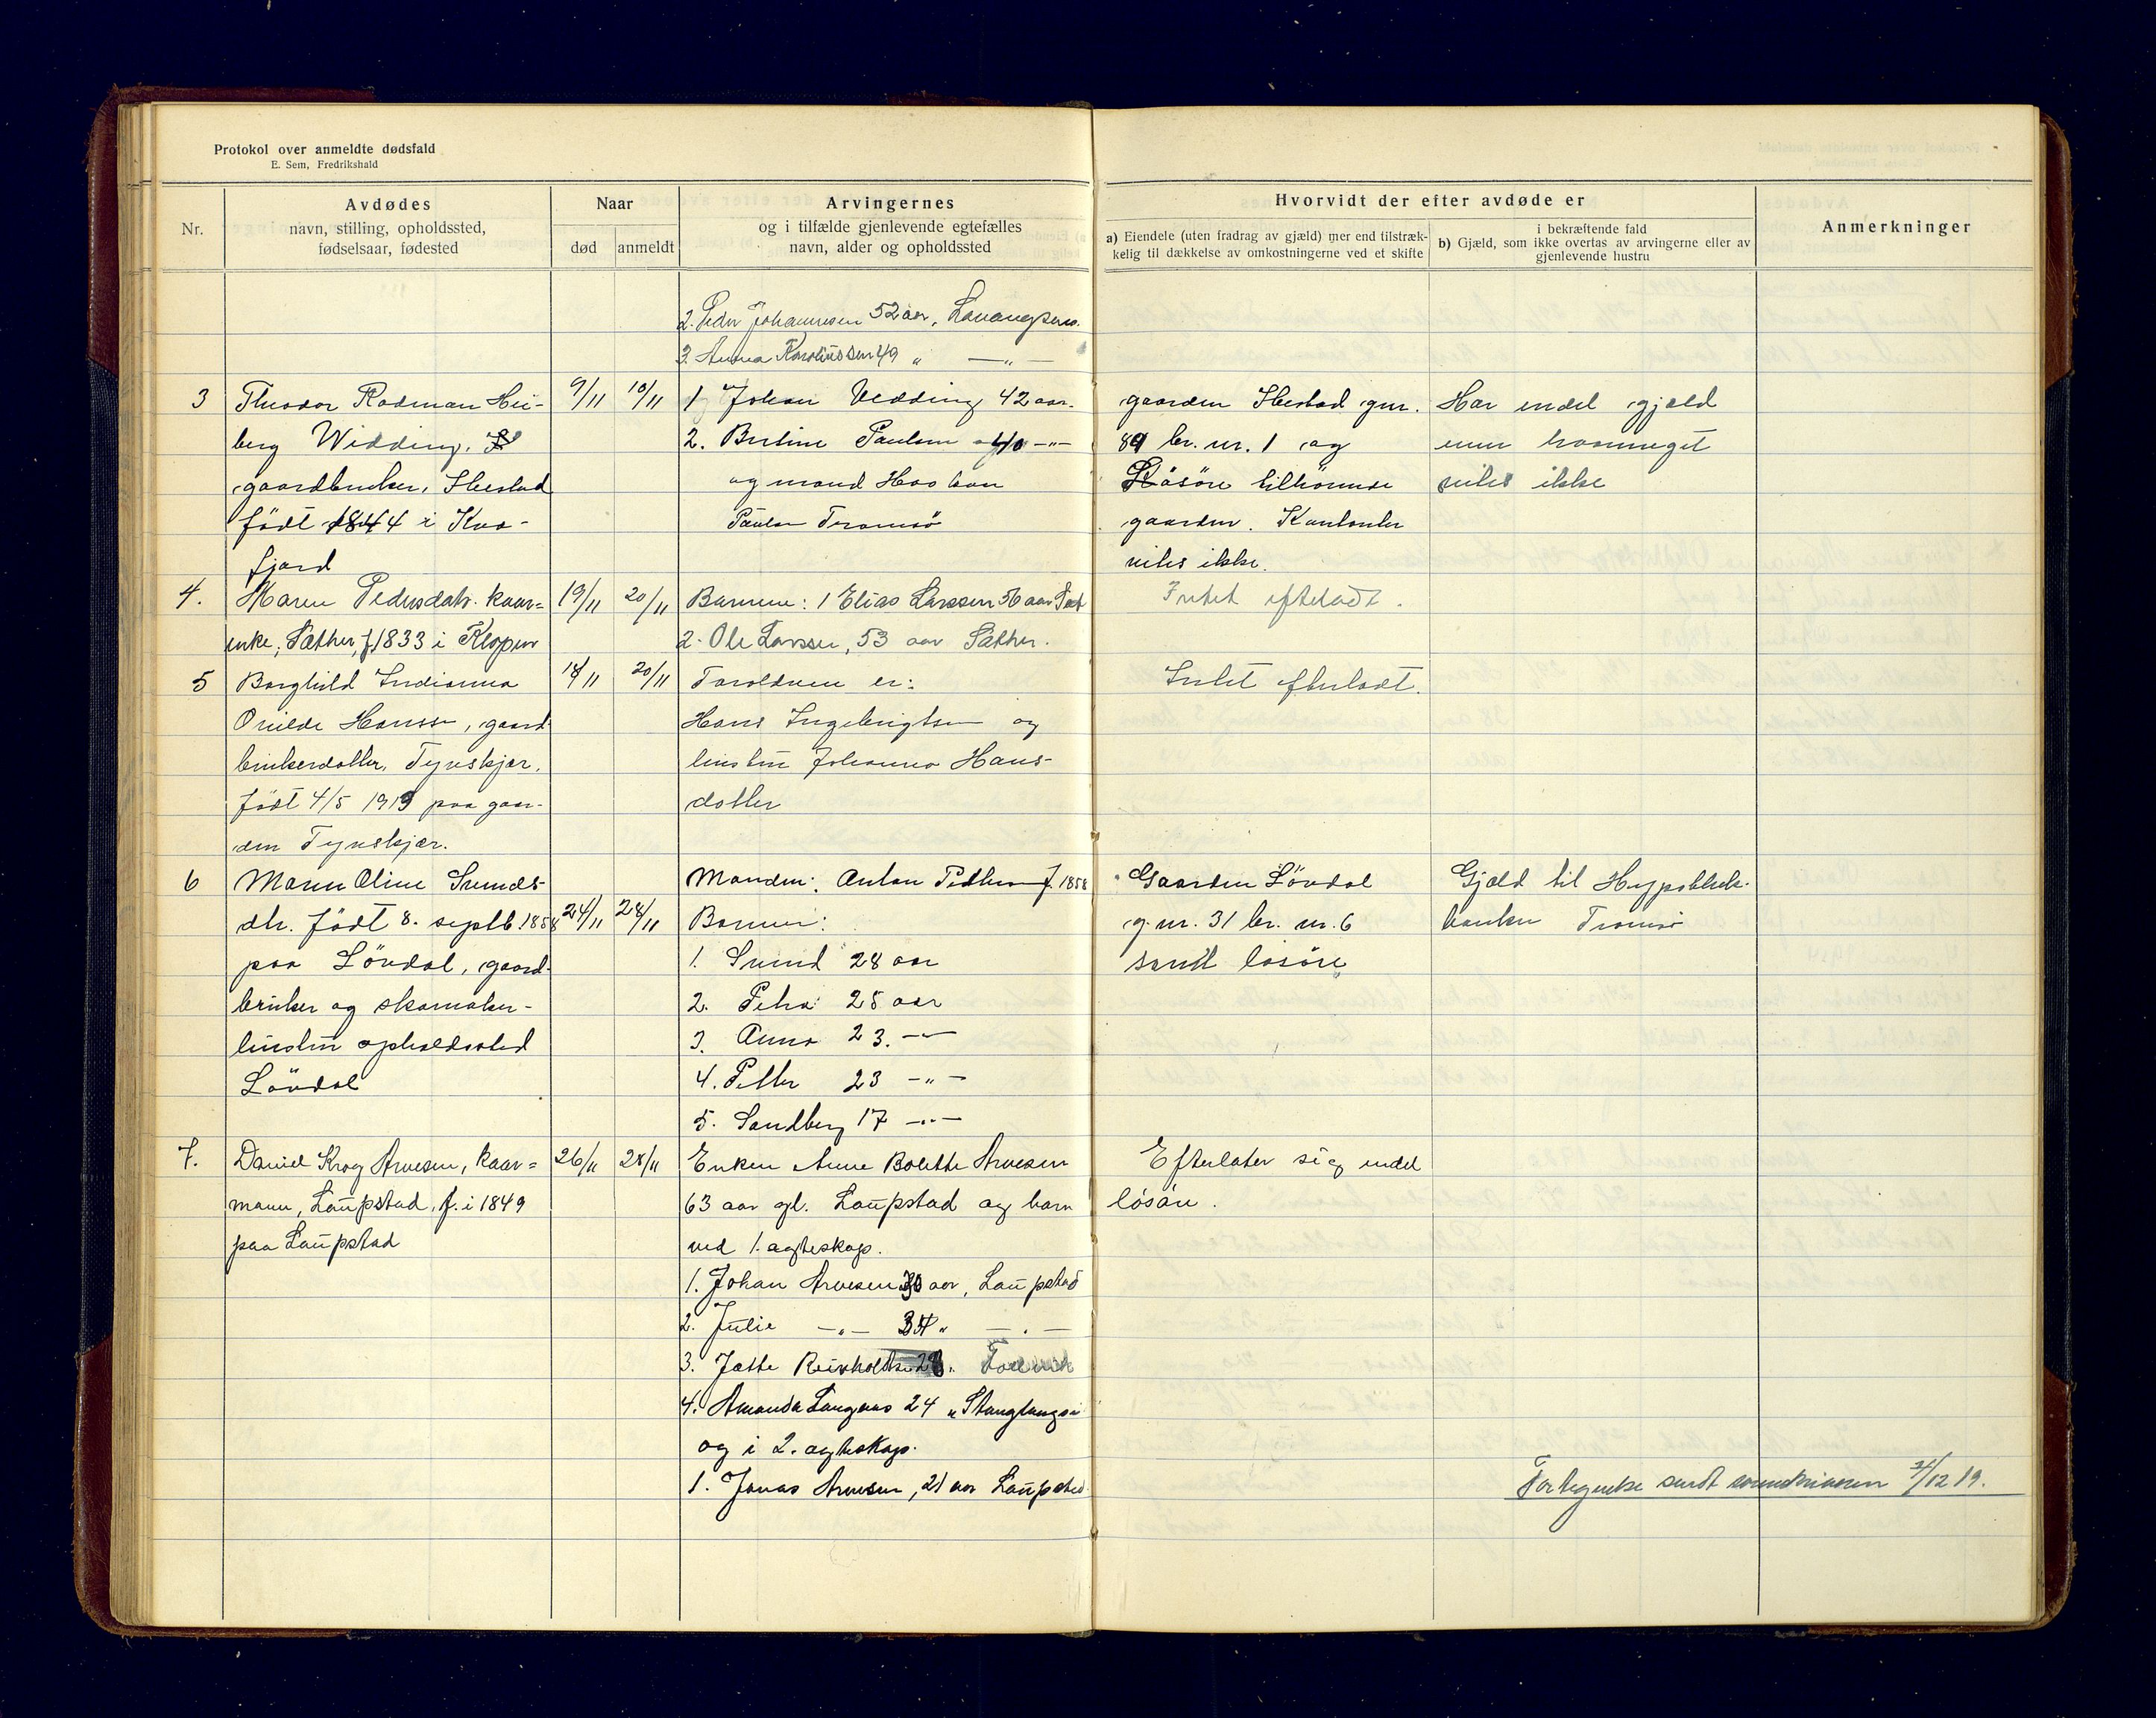 Protokol over anmeldte dødsfald
E. Sem, Fredrikshald
Nr.
Avdødes
navn, stilling, opholdssted,
fødselsaar, fødested
Naar
død
anmeldt
Arvingernes
og i tilfælde gjenlevende egtefælles
navn, alder og opholdssted
Hvorvidt der efter avdøde er
a) Eiendele (uten fradrag av gjæld) mer end tilstræk-
kelig til dækkelse av omkostningerne ved et skifte
i bekræftende fald
b) Gjæld, som ikke overtas av arvingerne eller av
gjenlevende hustru
Anmerkninger
2. Peder Johannesen 52 aar, Lavangsens.
3. Anna Karoliussen 49 " —"—
3
Theodor Rodman Hei-
berg Widding,
gaardbruker, Ibestad
født 1844 i Kva-
fjord
9/11
10/11
1 Johan Widding 42 aar.
2. Bertine Paulsen 40 —"—
og mand Haakon
Paulsen Tromsø
gaarden Ibestad gnr.
89 br. nr. 1 og
Løsøre tilhørende
gaarden. Kontanter
vites ikke.
Har endel gjæld
men hvormeget
vites ikke
4.
Maren Pedersdatr. kaar=
enke, Sæther, f. 1833 i Kloven
19/11
20/11
Barnene: 1 Elias Larssen 56 aar Sæt
2. Ole Larssen, 53 aar Sæther.
Intet efterladt.
5
Borghild Indianna
Ovilde Hanssen, gaard
brukerdatter, Tynskjær.
født 4/5 1919 paa gaar-
den Tynskjær.
18/11
20/11
Foreldrene er:
Hans Ingebrigtsen og
hustru Johanna Hans-
datter
Intet efterladt.
6
Maren Oline Svends-
dtr. født 8. septb. 1858
paa Løvdal, gaard-
bruker og skomaker-
hustru opholdssted
Løvdal
24/11
28/11
Manden: Anton Pedersen f. 1858
Barnene:
1. Svend 28 aar
2. Petra 25 aar
3. Anna 23. —"—
4. Petter 23 —"—
5. Sandberg 17 —"—
Gaarden Løvdal
g. nr. 31 br. nr. 6
samt løsøre
Gjæld til Hypothek-
banken Tromsø
7.
Daniel Krog Arnesen, kaar=
mann, Laupstad, f. i 1849
paa Laupstad
26/11
28/11
Enken Anne Bolette Arnesen
63 aar gl. Laupstad og barn
ved 1. ægteskap.
1. Johan Arnesen aar, Laupstad
2. Julie —"— 34 " —"—
3. Jætte Reinholdtsen
4. Amanda Langaas 24 " Stanglangs.
og i 2. ægteskap.
1. Jonas Arnesen, 21 aar Laupstad
Efterlater sig endel
løsøre.
Fortegnelse sendt sorenskriveren /12 19.